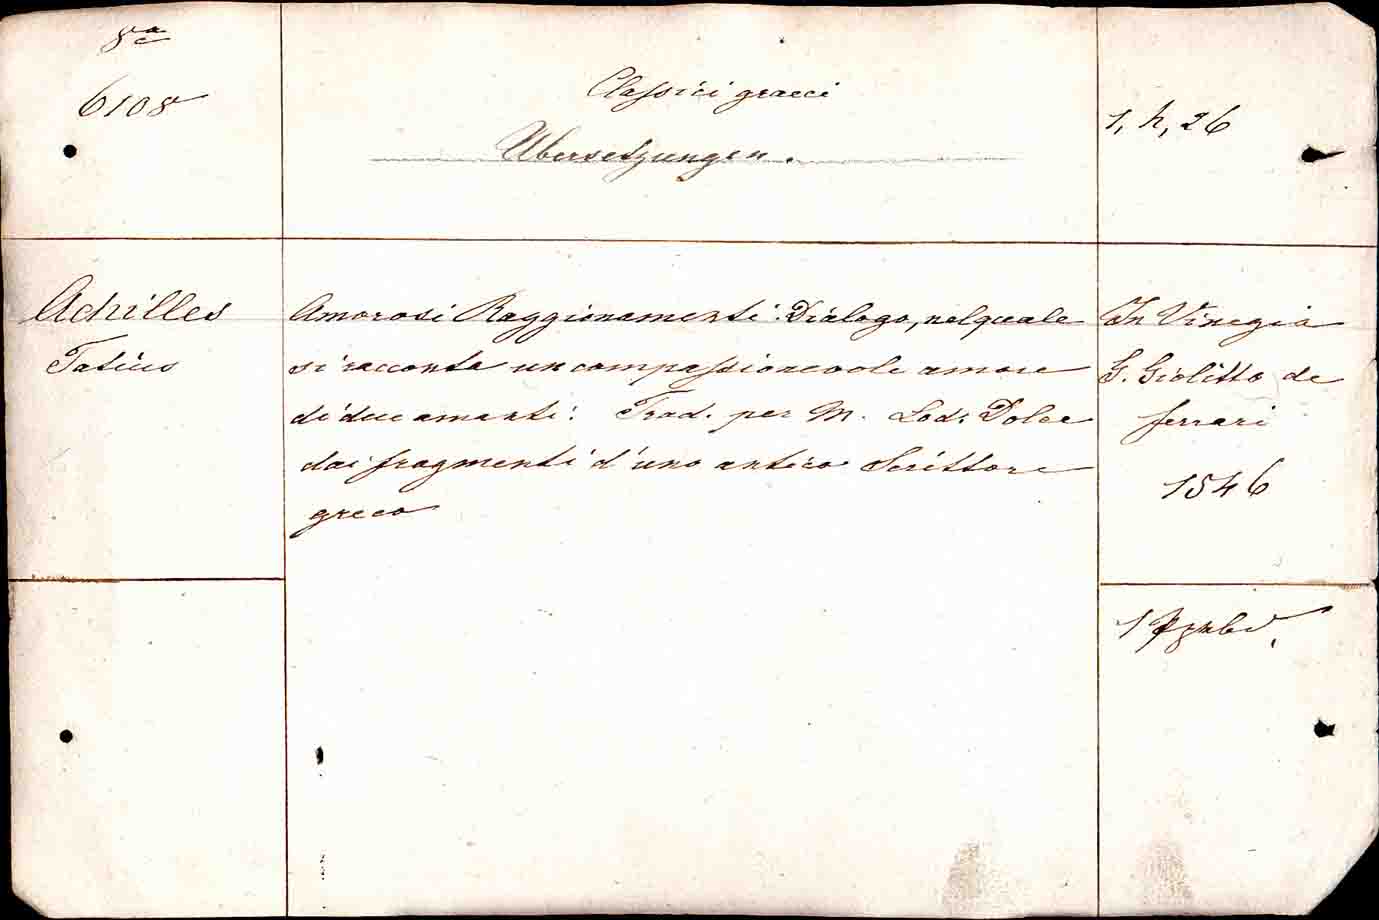 8ᵃ
6108
Classici graeci
Übersetzungen.
1, h, 26
Achilles
Tatius
Amorosi Raggionamenti. Dialogo, nel quale
si racconta un compassionevole amore
di due amanti: Trad. per M. Lod. Dolce
dai fragmenti d'uno antico Scrittore
greco
In Vinegia
G. Giolitto de
ferrari
1546
1